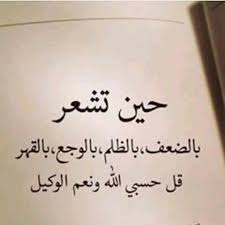 حين تشعر
بالضعف،بالظلم،بالوجع،بالقهر
قل حسبي الله ونعم الوكيل